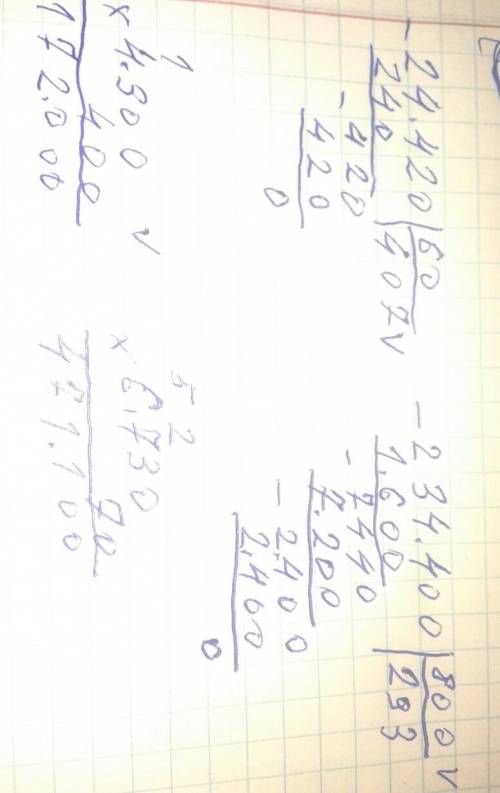 -24.420 | 60
240 | 407 v
-420
420
0
-234.400 | 800 v
1.600 | 293
-7440
7.200
-2.400
2.400
0
1
x 4.300 v
400
172.000
5 2
x 6.730
70
471.100